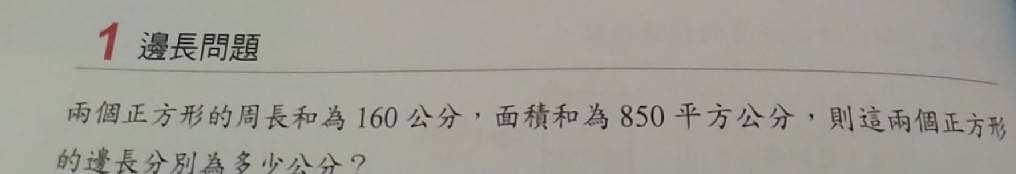 1 邊長問題
兩個正方形的周長和為160公分，面積和為850平方公分，則這兩個正方形
的邊長分別為多少公分？